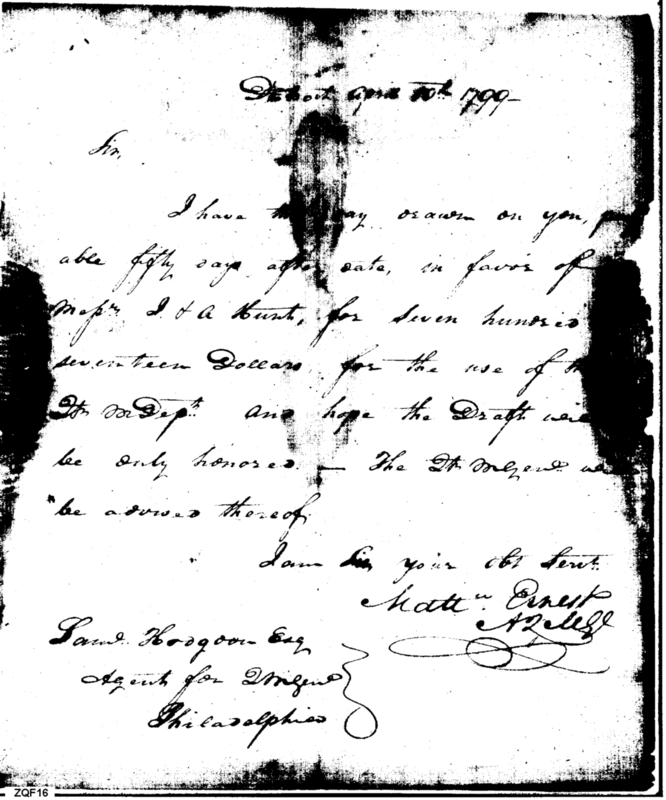 Detroit April 10th 1799-
Sir,
I have this day drawn on you, pay
able fifty days after date, in favor of
Messrs. I & A Hunt, for seven hundred
seventeen Dollars for the use of
Qr. M Dept. and hope the Draft will
be duly honored. — The Qr. MGenl.
be advised thereof.
I am Sir your obt Servt.
Mattw. Ernest
AQMGl
Saml. Hodgdon Esq
Agent for QMGenl
Philadelphia
ZQF16